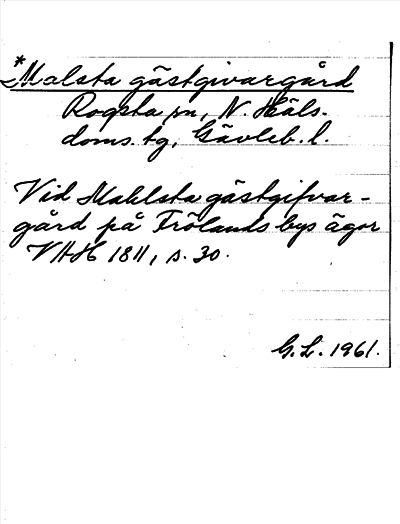 *Malsta gästgivargård
Rogsta sn, N. Häls.
doms. tg, Gävleb. l.
Vid Mahlsta gästgifvar-
gård på Frölands bys ägor
VHH 1811, s. 30.
G. L. 1961.